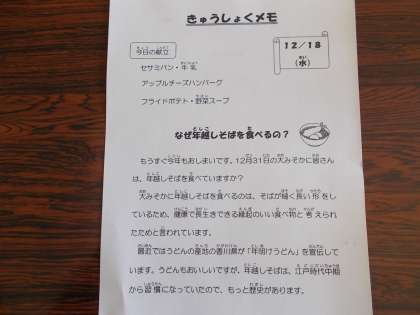 きゅうしょくメモ
今日の献立
12/18
(水)
セサミパン・牛乳
アップルチーズハンバーグ
フライドポテト・野菜スープ
なぜ年越しそばを食べるの？
もうすぐ今年もおしまいです。12月31日の大みそかに皆さん
は、年越しそばを食べていますか？
大みそかに年越しそばを食べるのは、そばが細く長い形をし
ているため、健康で長生きできる縁起のいい食べ物と考えられ
たためと言われています。
最近ではうどんの産地の香川県が「年明けうどん」を宣伝して
います。うどんもおいしいですが、年越しそばは、江戸時代中期
から習慣になっていたので、もっと歴史があります。